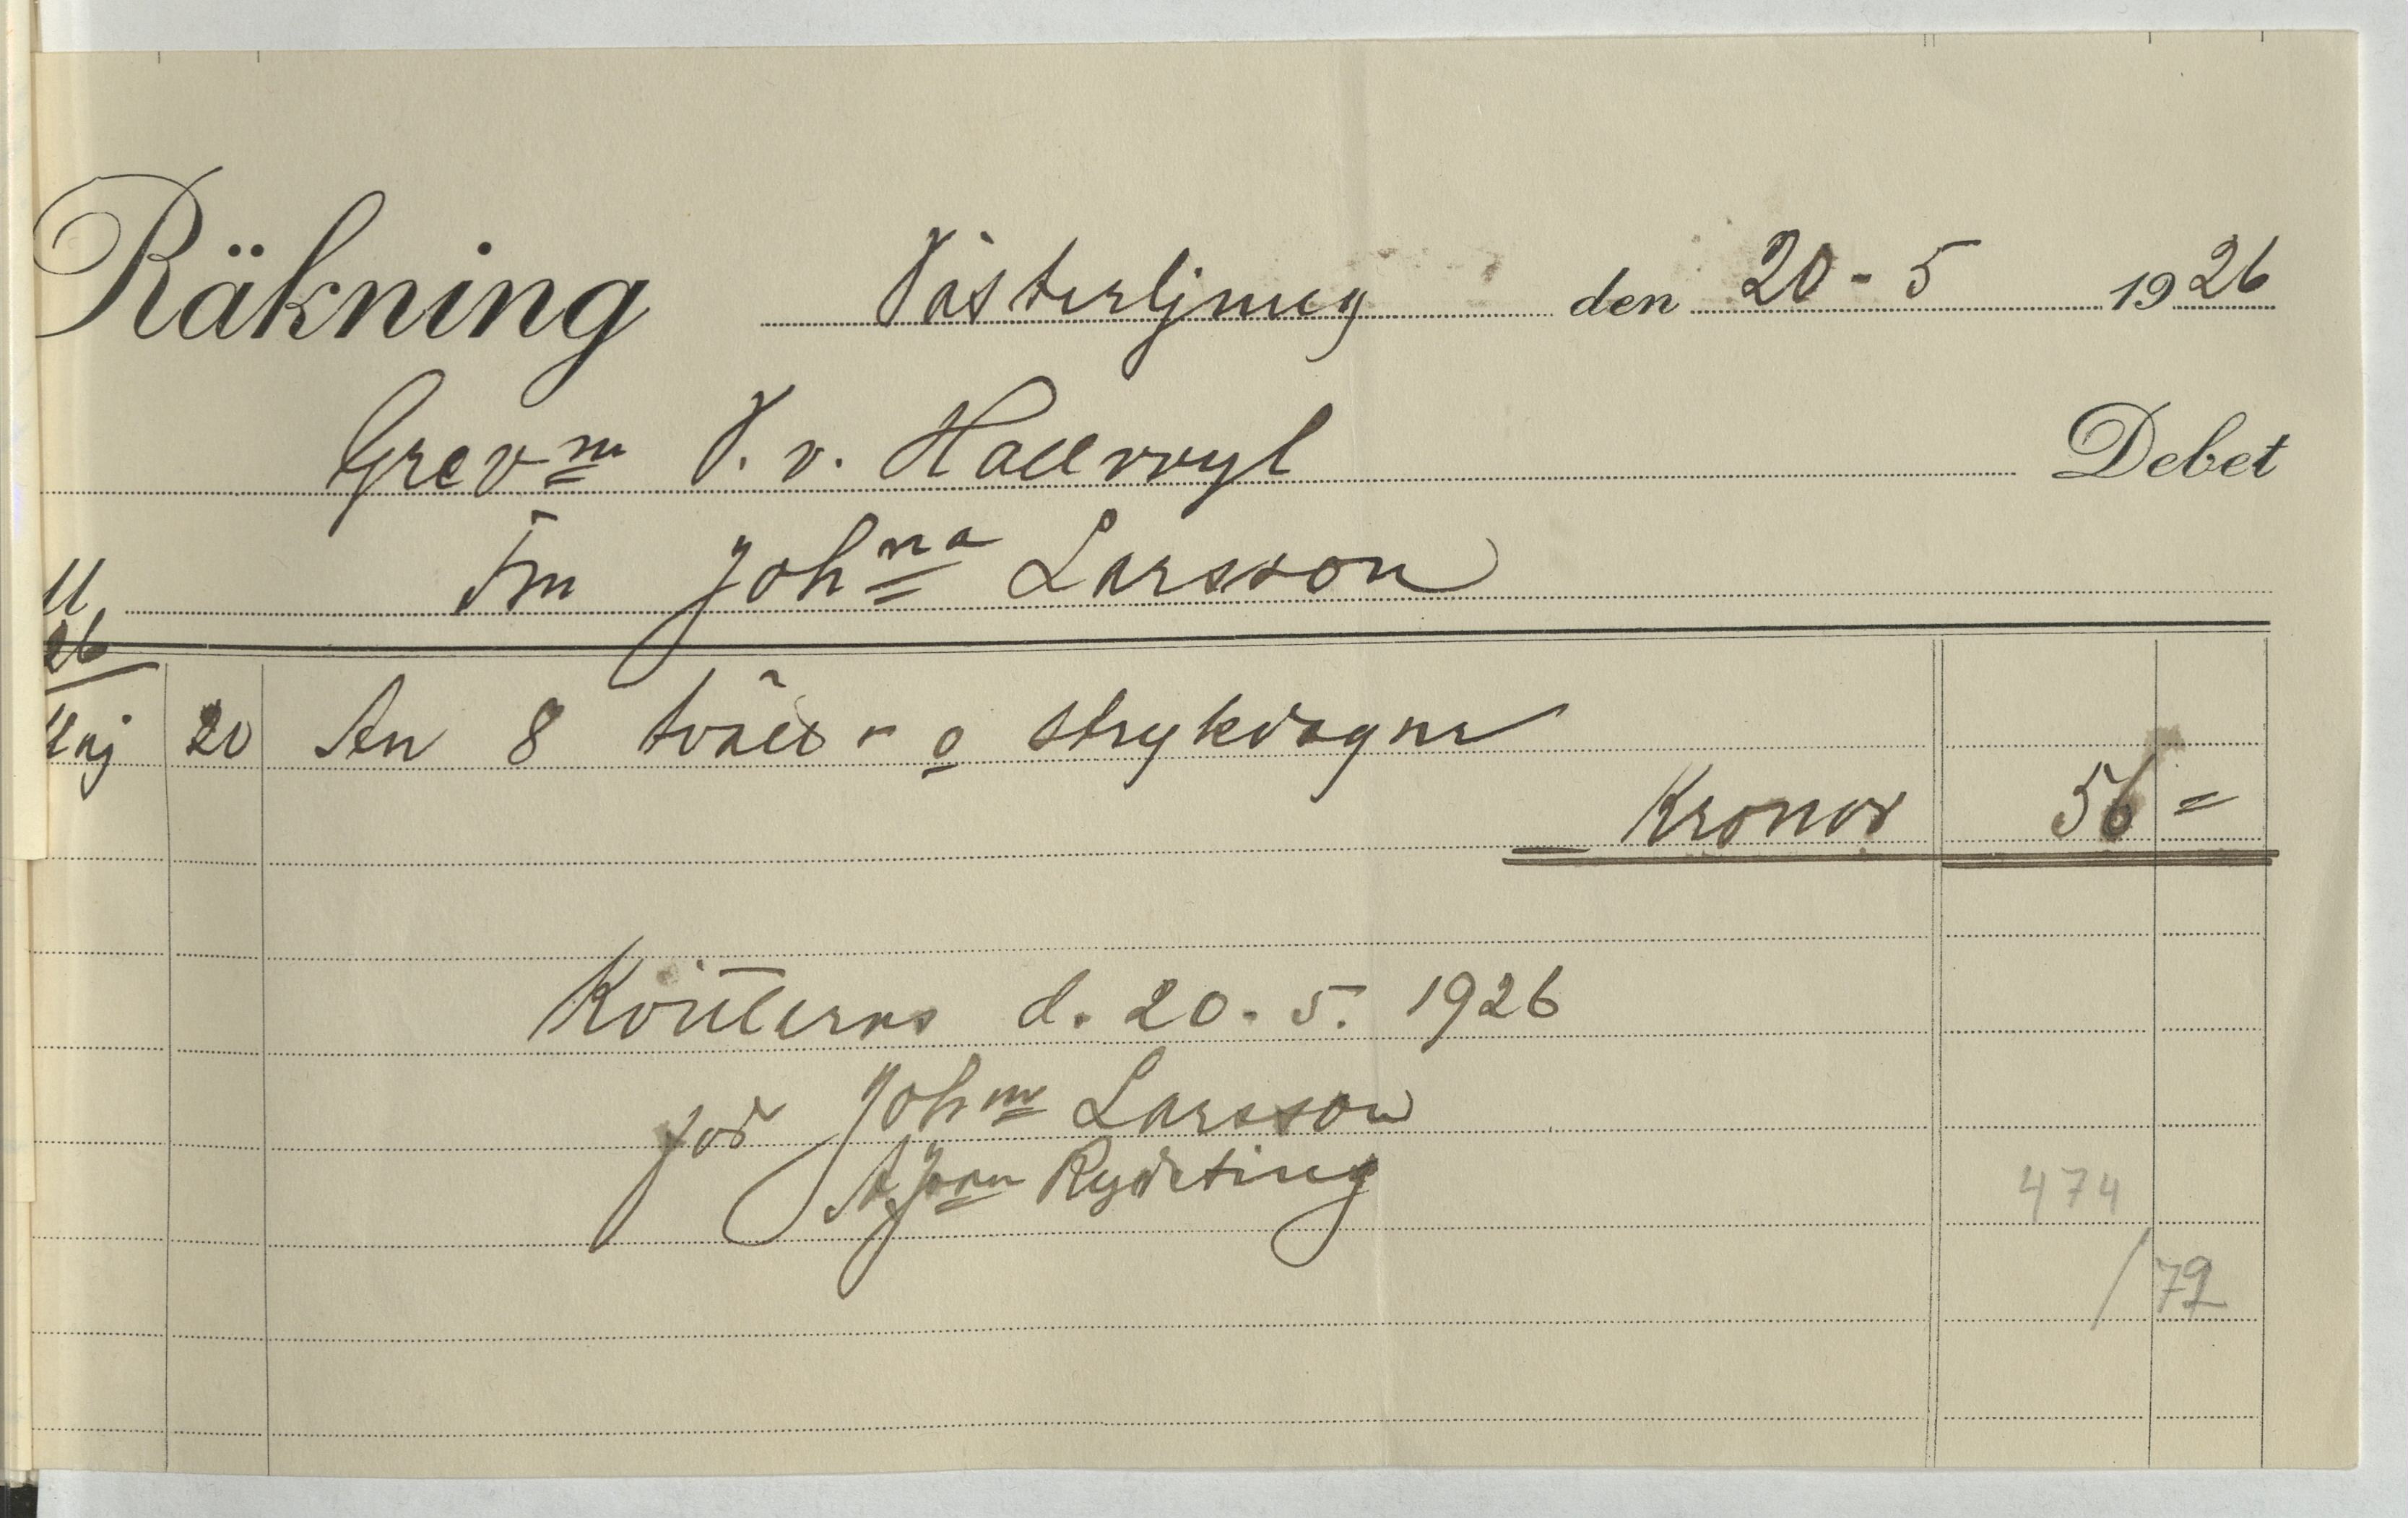 Räkning Västerljung den 20-5 1926
Grevn V. v. Hallwyl Debet
Frn Johna Larsson
26
Maj 20 An 8 tvätt- o strykdagar
Kronor 56 =
Kvitteras d. 20. 5. 1926
för Johna Larsson
Rydeting
474
/79